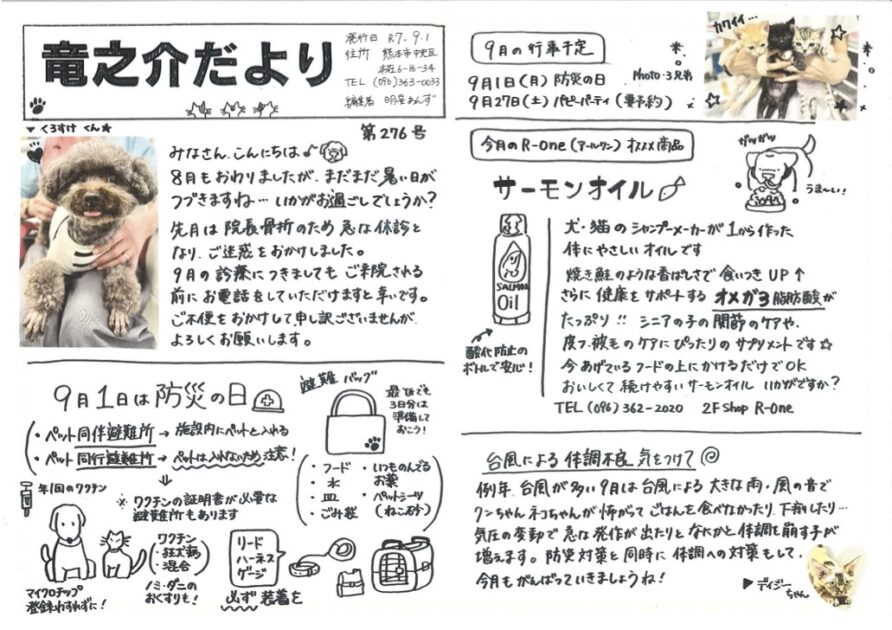 竜之介だより
発行日 R7.9.1
住所 熊本市中央区
本荘6-16-34
TEL (096)363-0033
編集者 明星あんず
第276号
▼くろすけ くん★
みなさん、こんにちは♪
8月もおわりましたが、まだまだ暑い日が
つづきますね…いかがお過ごしでしょうか?
先月は院長骨折のため急な休診と
なり、ご迷惑をおかけしました。
9月の診療につきましてもご来院される
前にお電話をしていただけますと幸いです。
ご不便をおかけして申し訳ございませんが、
よろしくお願いします。
9月1日は防災の日
・ペット同伴避難所→施設内にペットと入れる
・ペット同行避難所→ペットは入れないため注意!
⇓
※ワクチンの証明書が必要な
避難所もあります
年1回のワクチン
ワクチン
・狂犬病
・混合
マイクロチップ
登録わすれずに!
ノミ・ダニの
おくすりも!
避難バッグ
最低でも
3日分は
準備して
おこう!
・フード
・水
・皿
・ごみ袋
・いつものんでる
お薬
・ペットシーツ
(ねこ砂)
リード
ハーネス
ゲージ
必ず装着を
9月の行事予定
9月1日(月) 防災の日
9月27日(土) パピーパーティ(要予約)
Photo・3兄弟
カワイイ…
今月のR-One(アールワン)オススメ商品
サーモンオイル
ガツガツ
うま〜い!
SALMON
Oil
酸化防止の
ボトルで安心!
犬・猫のシャンプーメーカーが1から作った
体にやさしいオイルです
焼き鮭のような香ばしさで食いつきUP↑
さらに健康をサポートするオメガ3脂肪酸が
たっぷり!!シニアの子の関節のケアや、
皮フ・被毛のケアにぴったりのサプリメントです☆
今あげているフードの上にかけるだけでOK
おいしくて続けやすいサーモンオイルいかがですか?
TEL (096)362-2020 2F Shop R-One
台風による体調不良 気をつけて
例年、台風が多い9月は台風による大きな雨・風の音で
ワンちゃんネコちゃんが怖がってごはんを食べなかったり、下痢したり…
気圧の変動で急な発作が出たりとなにかと体調を崩す子が
増えます。防災対策と同時に体調への対策もして、
今月もがんばっていきましょうね!
▶デイジー
ちゃん